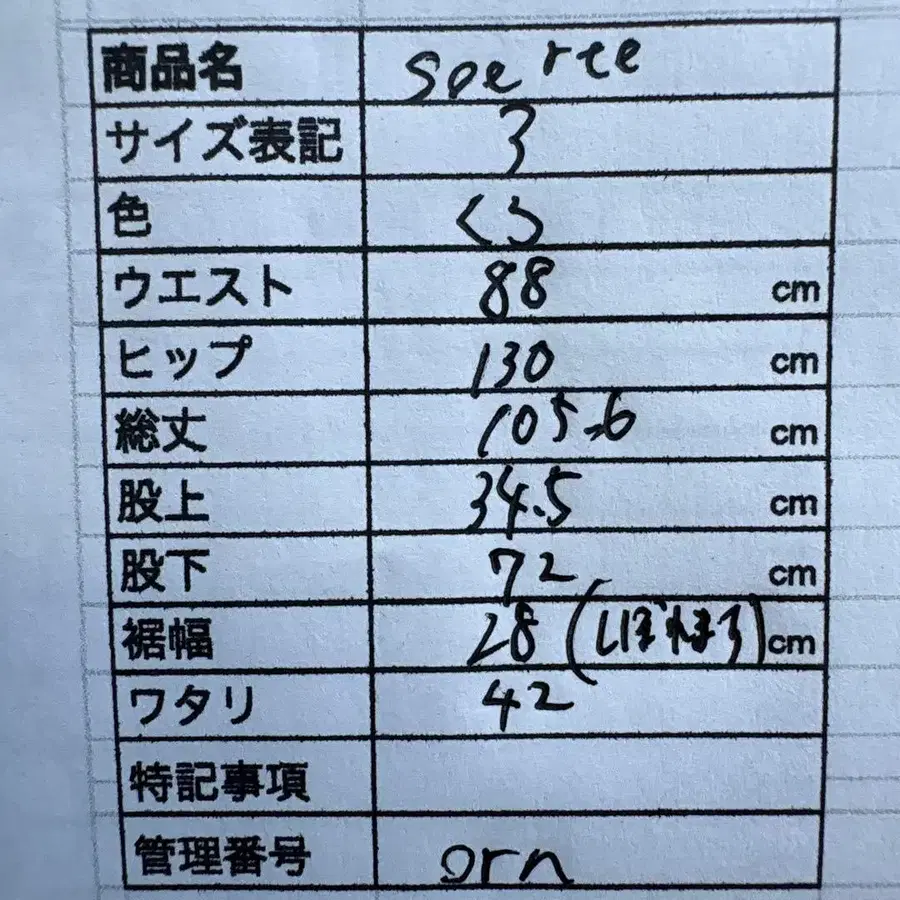 商品名 soe rtee
サイズ表記 3
色 くろ
ウエスト 88 cm
ヒップ 130 cm
総丈 105.6 cm
股上 34.5 cm
股下 72 cm
裾幅 28 (しぼれます) cm
ワタリ 42
特記事項
管理番号 orn